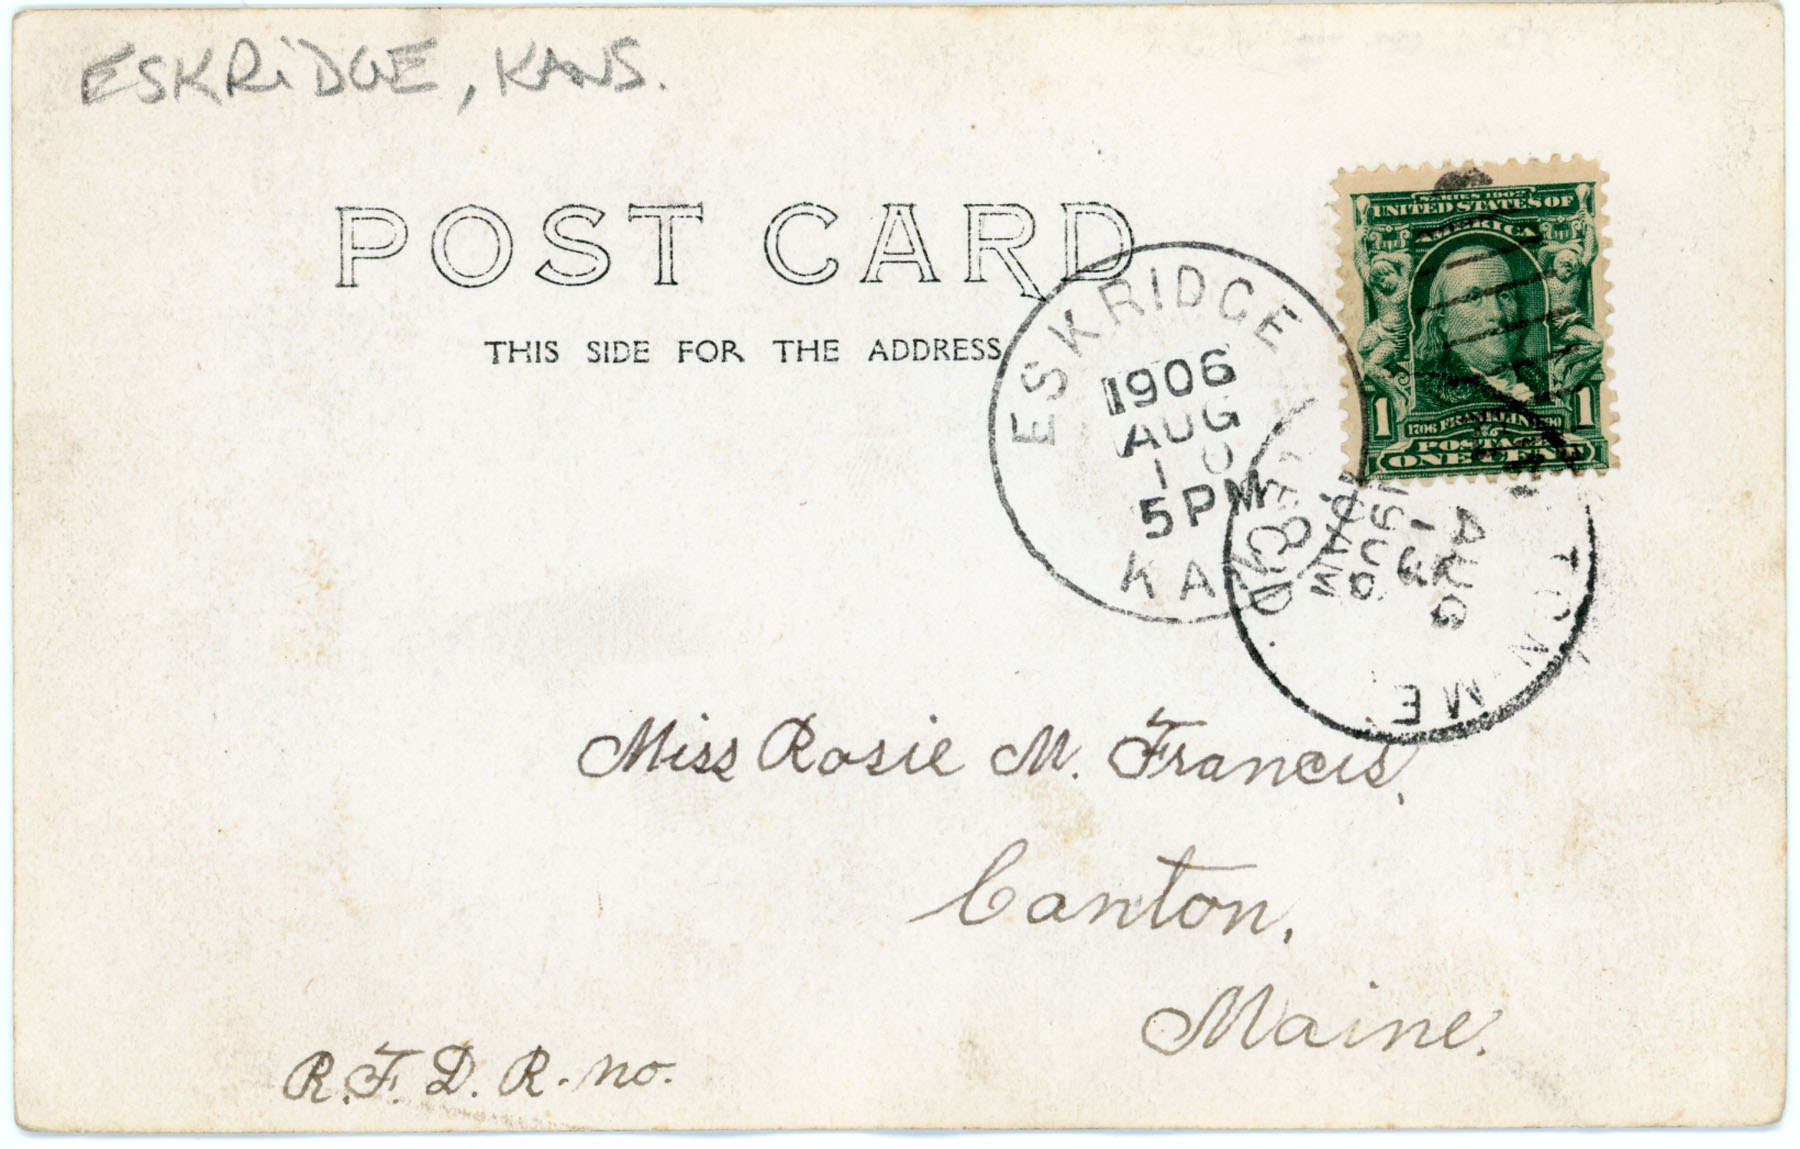 ESKRIDGE, KANS.
POST CARD
THIS SIDE FOR THE ADDRESS
SERIES 1902
UNITED STATES OF
AMERICA
1706 FRANKLIN 1790
POSTAGE
1 ONE CENT 1
ESKRIDGE
1906
AUG
5 PM
KAN
REC'D.
AUG
TON ME.
Miss Rosie M. Francis,
Canton,
Maine.
R.F.D. R. no.